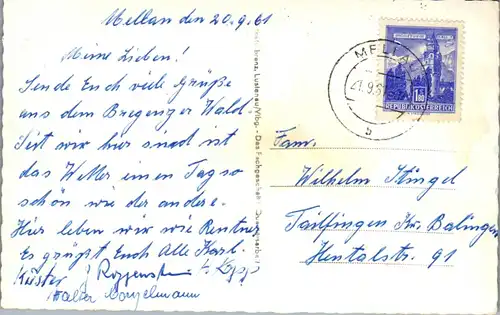 Mellau den 20.9.61
Meine Lieben!
Sende Euch viele Grüße
aus dem Bregenzer Wald.
Seit wir hier sind ist
das Wetter einen Tag so
schön wie der andere.
Hier leben wir wie Rentner
Es grüßt Euch Alle Karl.
Küster
Roggenstein
Walter
MELLAU
21.9.61
b
REPUBLIK ÖSTERREICH
Lustenau/Vlbg. - Das Fachgeschäft
Fam.
Wilhelm Stingel
Tailfingen Kr. Balingen
Hentalstr. 91